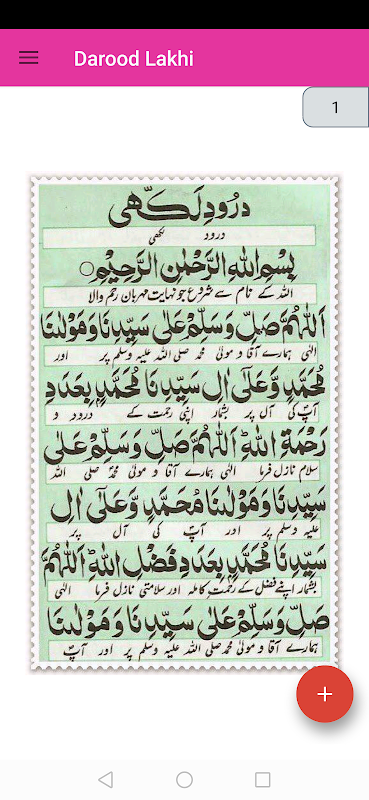 Darood Lakhi
1
درود لکھی
درود لکھی
بِسْمِ اللهِ الرَّحْمٰنِ الرَّحِيْمِ
اللہ کے نام سے شروع جو نہایت مہربان رحم والا
اَللّٰهُمَّ صَلِّ وَسَلِّمْ عَلٰى سَيِّدِنَا وَمَوْلٰنَا
الٰہی ہمارے آقا و مولیٰ محمد صلی اللہ علیہ وسلم پر اور
مُحَمَّدٍ وَّعَلٰٓى اٰلِ سَيِّدِنَا مُحَمَّدٍ بِعَدَدِ
آپؐ کی آل پر بشمار اپنی رحمت کے درود و
رَحْمَةِ اللهِ اَللّٰهُمَّ صَلِّ وَسَلِّمْ عَلٰى
سلام نازل فرما الٰہی ہمارے آقا و مولیٰ محمدؐ صلی اللہ
سَيِّدِنَا وَمَوْلٰنَا مُحَمَّدٍ وَّعَلٰٓى اٰلِ
علیہ وسلم پر اور آپؐ کی آل پر
سَيِّدِنَا مُحَمَّدٍ بِعَدَدِ فَضْلِ اللهِ اَللّٰهُمَّ
بشمار اپنے فضل کے رحمت کاملہ اور سلامتی نازل فرما الٰہی
صَلِّ وَسَلِّمْ عَلٰى سَيِّدِنَا وَمَوْلٰنَا
ہمارے آقا و مولیٰ محمد صلی اللہ علیہ وسلم پر اور آپؐ